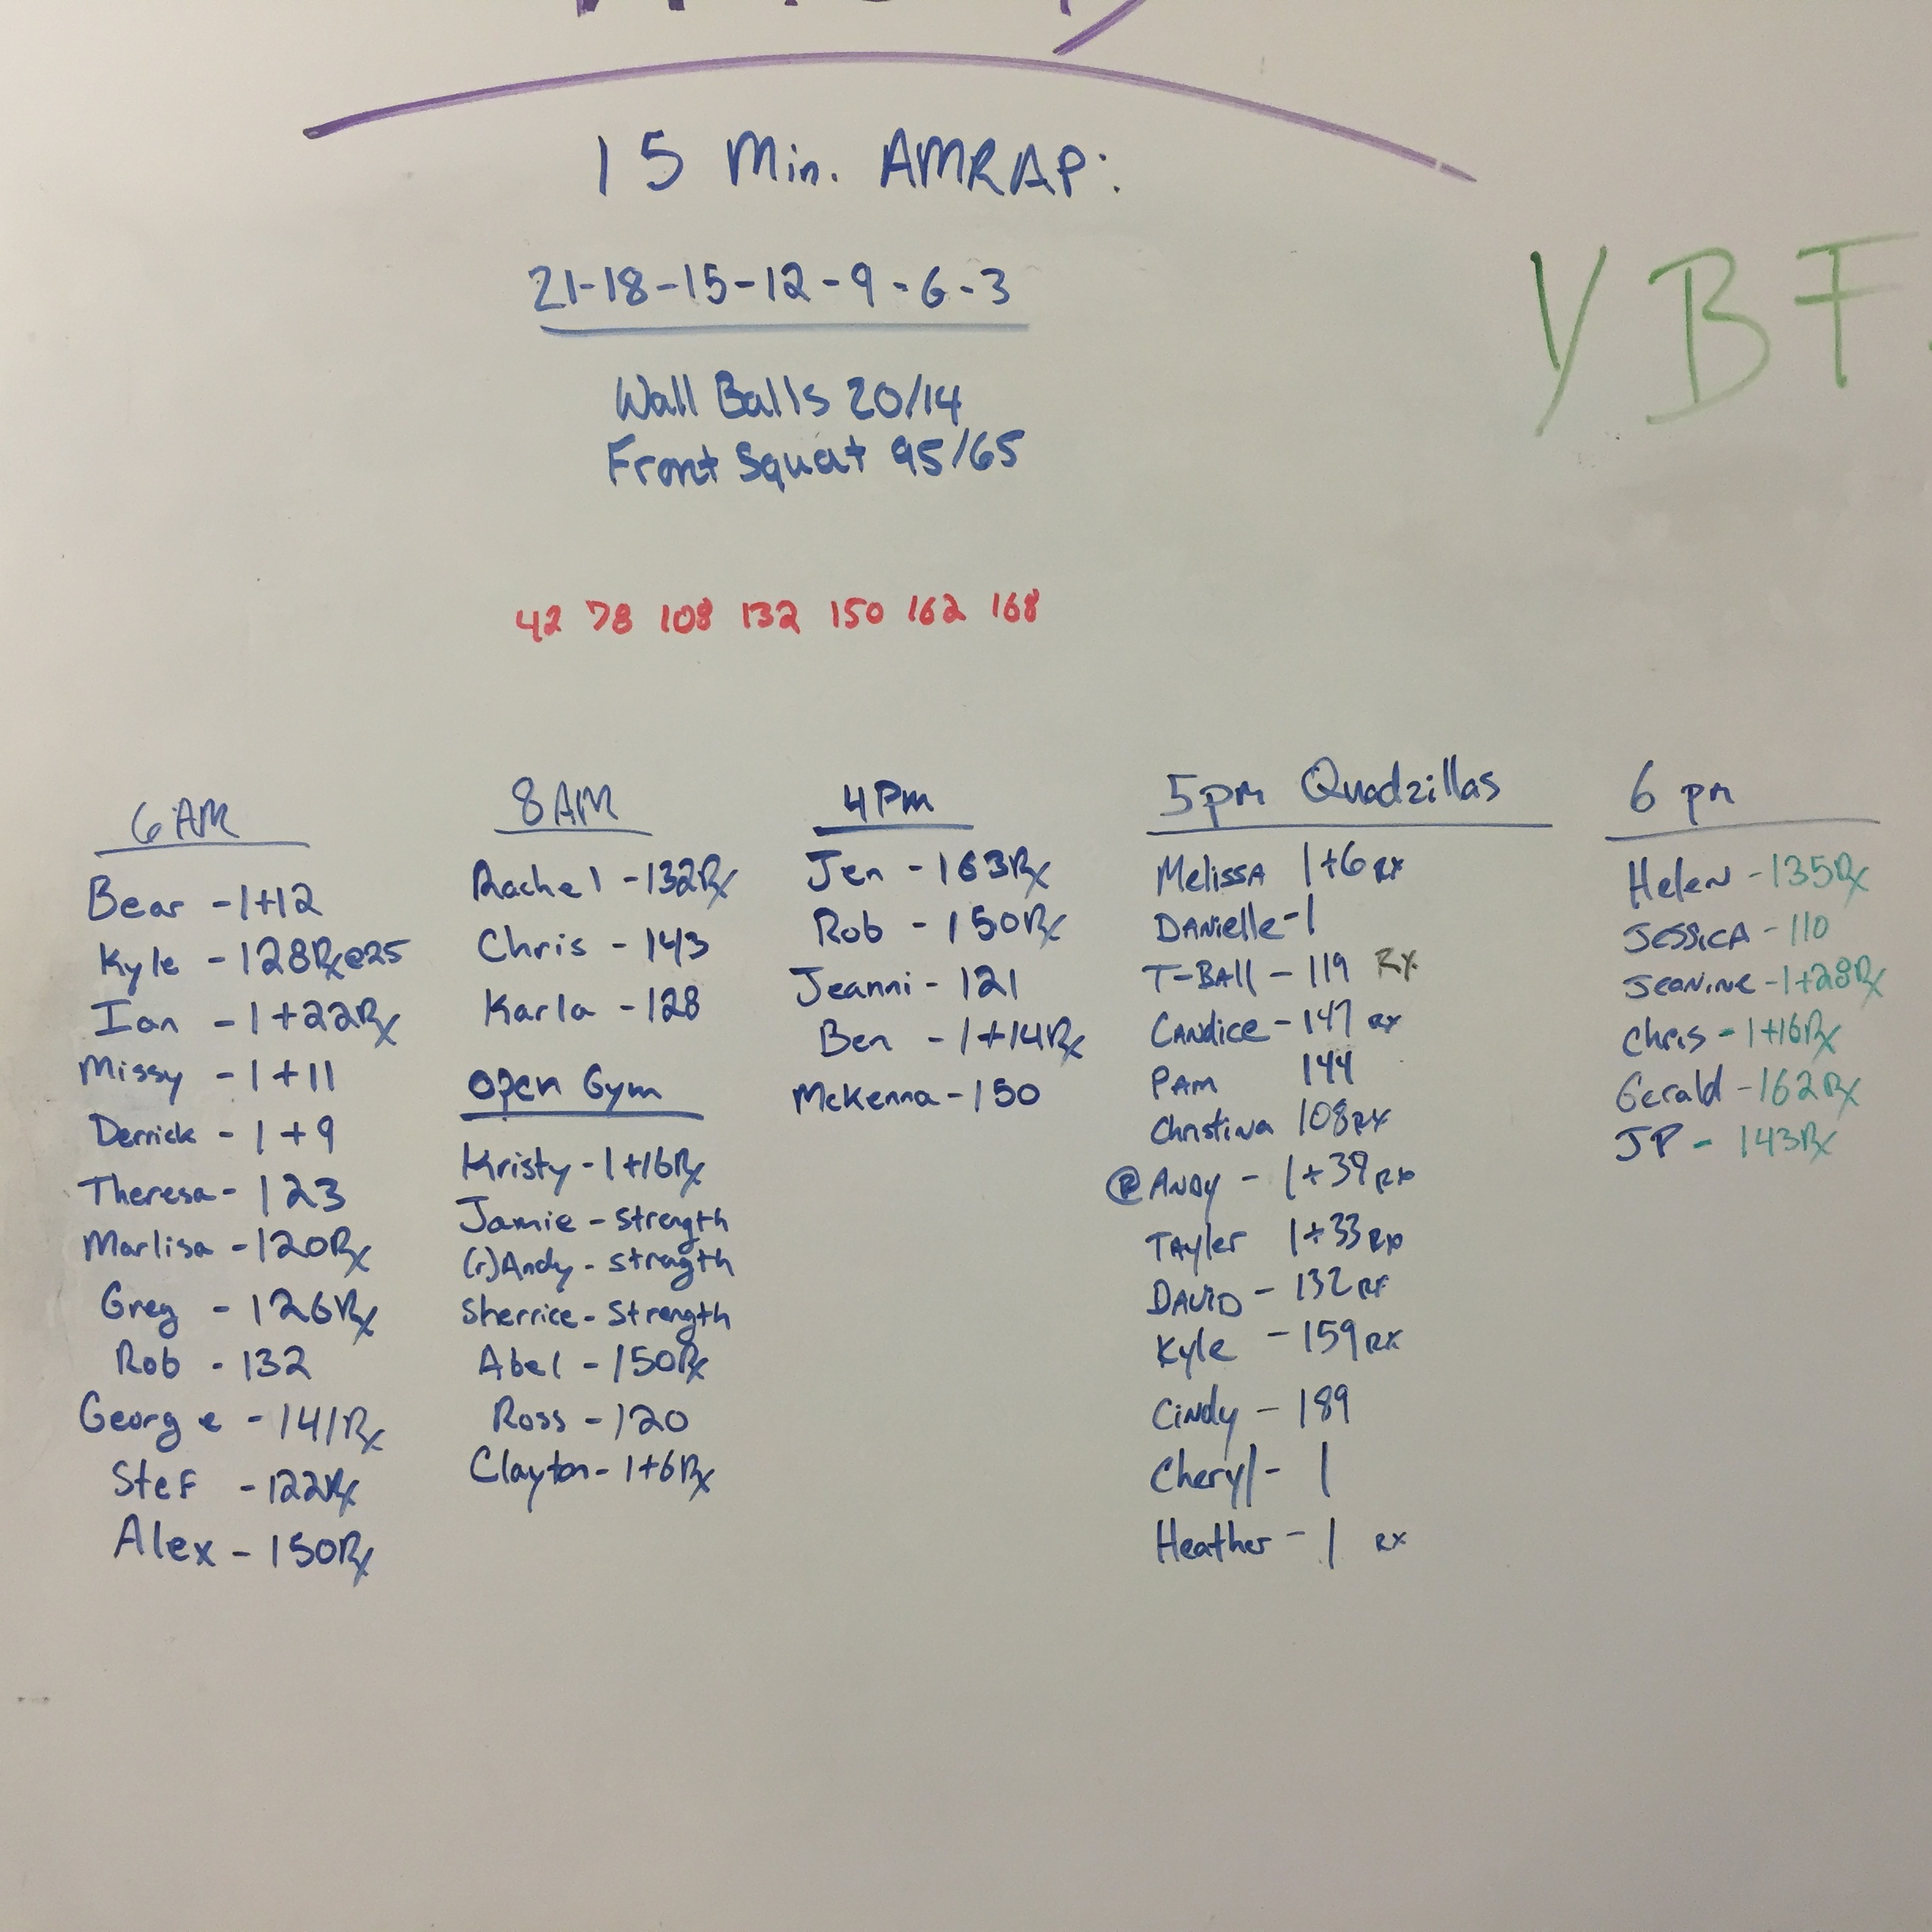 15 Min. AMRAP:
21-18-15-12-9-6-3
Wall Balls 20/14
Front Squat 95/65
YBF
42 78 108 132 150 162 168
6AM
Bear -1+12
Kyle -128Rx@25
Ian -1+22Rx
Missy -1+11
Derrick -1+9
Theresa-123
Marlisa -120Rx
Greg -126Rx
Rob -132
George -141Rx
Stef -122Rx
Alex -150Rx
8AM
Rachel -132Rx
Chris -143
Karla -128
Open Gym
Kristy -1+16Rx
Jamie - Strength
(r)Andy - Strength
Sherrice - Strength
Abel -150Rx
Ross -120
Clayton-1+6Rx
4Pm
Jen -163Rx
Rob -150Rx
Jeanni -121
Ben -1+14Rx
McKenna-150
5pm Quadzillas
MelissA 1+6 RX
DANielle-1
T-BAll - 119 RX
CANdice - 147 RX
PAM 144
Christina 108RX
@ANDy - 1+39 RX
TAyler 1+33 RX
DAVID - 132 RX
Kyle - 159 RX
Cindy - 189
Cheryl - 1
Heather - 1 RX
6 pm
Helen -135Rx
JessicA -110
Jeanine -1+28Rx
Chris -1+16Rx
Gerald -162Rx
JP - 143Rx